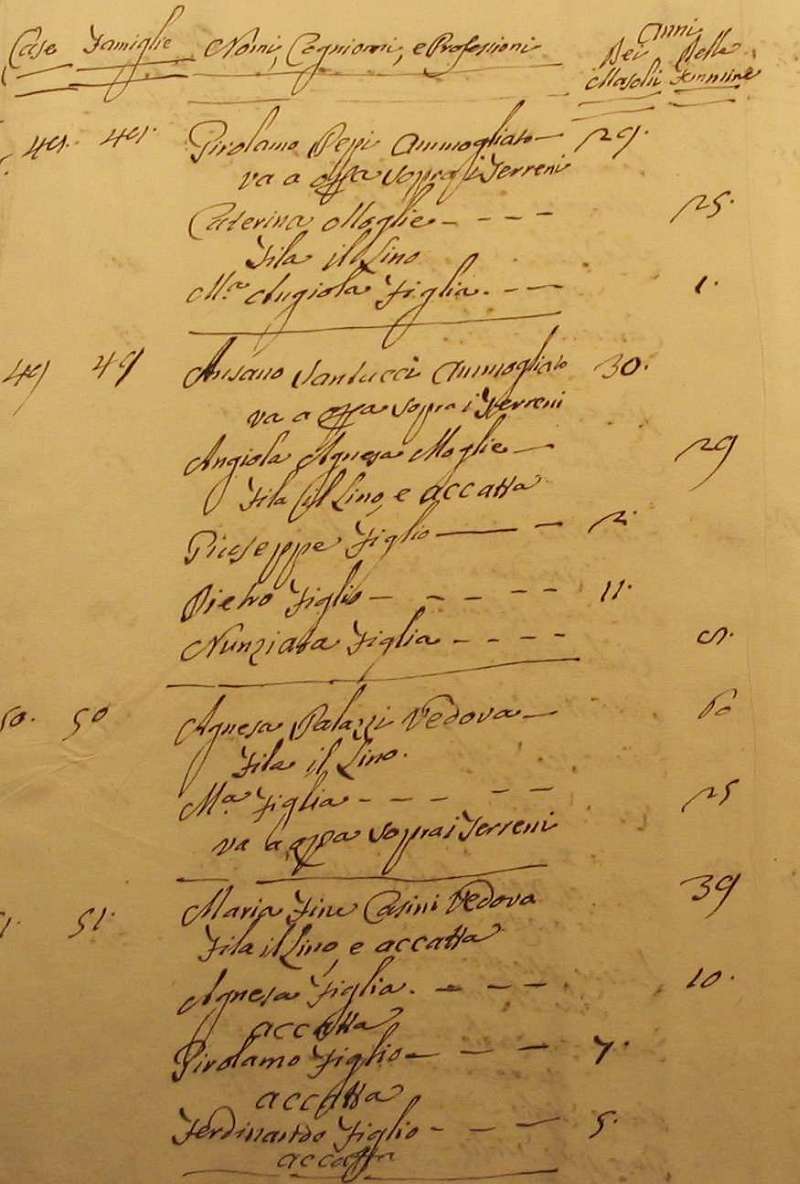 Anni
Case Famiglie Nomi, Cogniomi, e Professioni Dei Delle
Maschi Femmine
49. 49. Girolamo Peppi Ammogliato 29.
va a opra sopra i Terreni
Caterina Moglie 25.
Fila il Lino
M.a Angiola Figlia. 1.
49 49 Ansano Santucci Ammogliato 30.
va a opra sopra i Terreni
Angiola Agnesa Moglie 29
Fila il Lino, e accatta
Giuseppe Figlio 2.
Pietro Figlio 11.
Nunziata Figlia
50. 50 Agnesa Palazzi Vedova 60
Fila il Lino.
M.a Figlia 25
va a opra sopra i Terreni
51. Maria Fine Casini Vedova 39
Fila il Lino, e accatta
Agnesa Figlia. 10.
accatta
Girolamo Figlio 7.
accatta
Ferdinando Figlio 5.
accatta